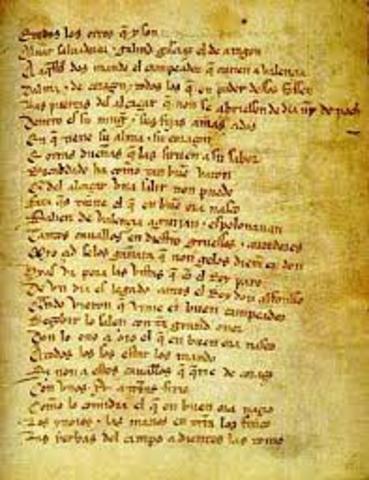 E todos los otros q̃ y son
Aluar saluadorez galind garciaz el de aragon
A aq̃stos dos mando el campeador q̃ curien a valencia
Dalma de coraçon todos los q̃ en poder dessos fossen
Las puertas del alcaçar q̃ non se abriessen de dia nĩ de noch
Dentro es su mugr̃ sus fijas amas ados
En q̃ tiene su alma su coraçon
E otras dueñas q̃ las siruen a su sabor
Recabdado ha como tan buẽ varon
Q̃ del alcaçar vna salir non puede
Fata q̃s torne el q̃ en buẽ ora nasco
Salien de valencia aguijan espolonauan
Tantos cauallos en diestro gruessos corredores
Myo çid selos gañara q̃ non gelos dierã en don
Hyas va pora las vistas q̃ cõ el Rey paro
De vn dia es legado antes el Rey don alfonsso
Q̃ndo vieron q̃ vinie el buen campeador
Reçebir lo salen con tã grand onor
Don lo ouo a oio el q̃ en buen ora nasco
Atodos los sos estar los mando
Si non a estos cauallos q̃ q̃rie de coraç
Con vnos .xv. a trr̃as firio
Como lo comidia el q̃ en buen ora naçio
Los ynoios las manos en trr̃a los finco
Las yerbas del campo a dientes las tomo